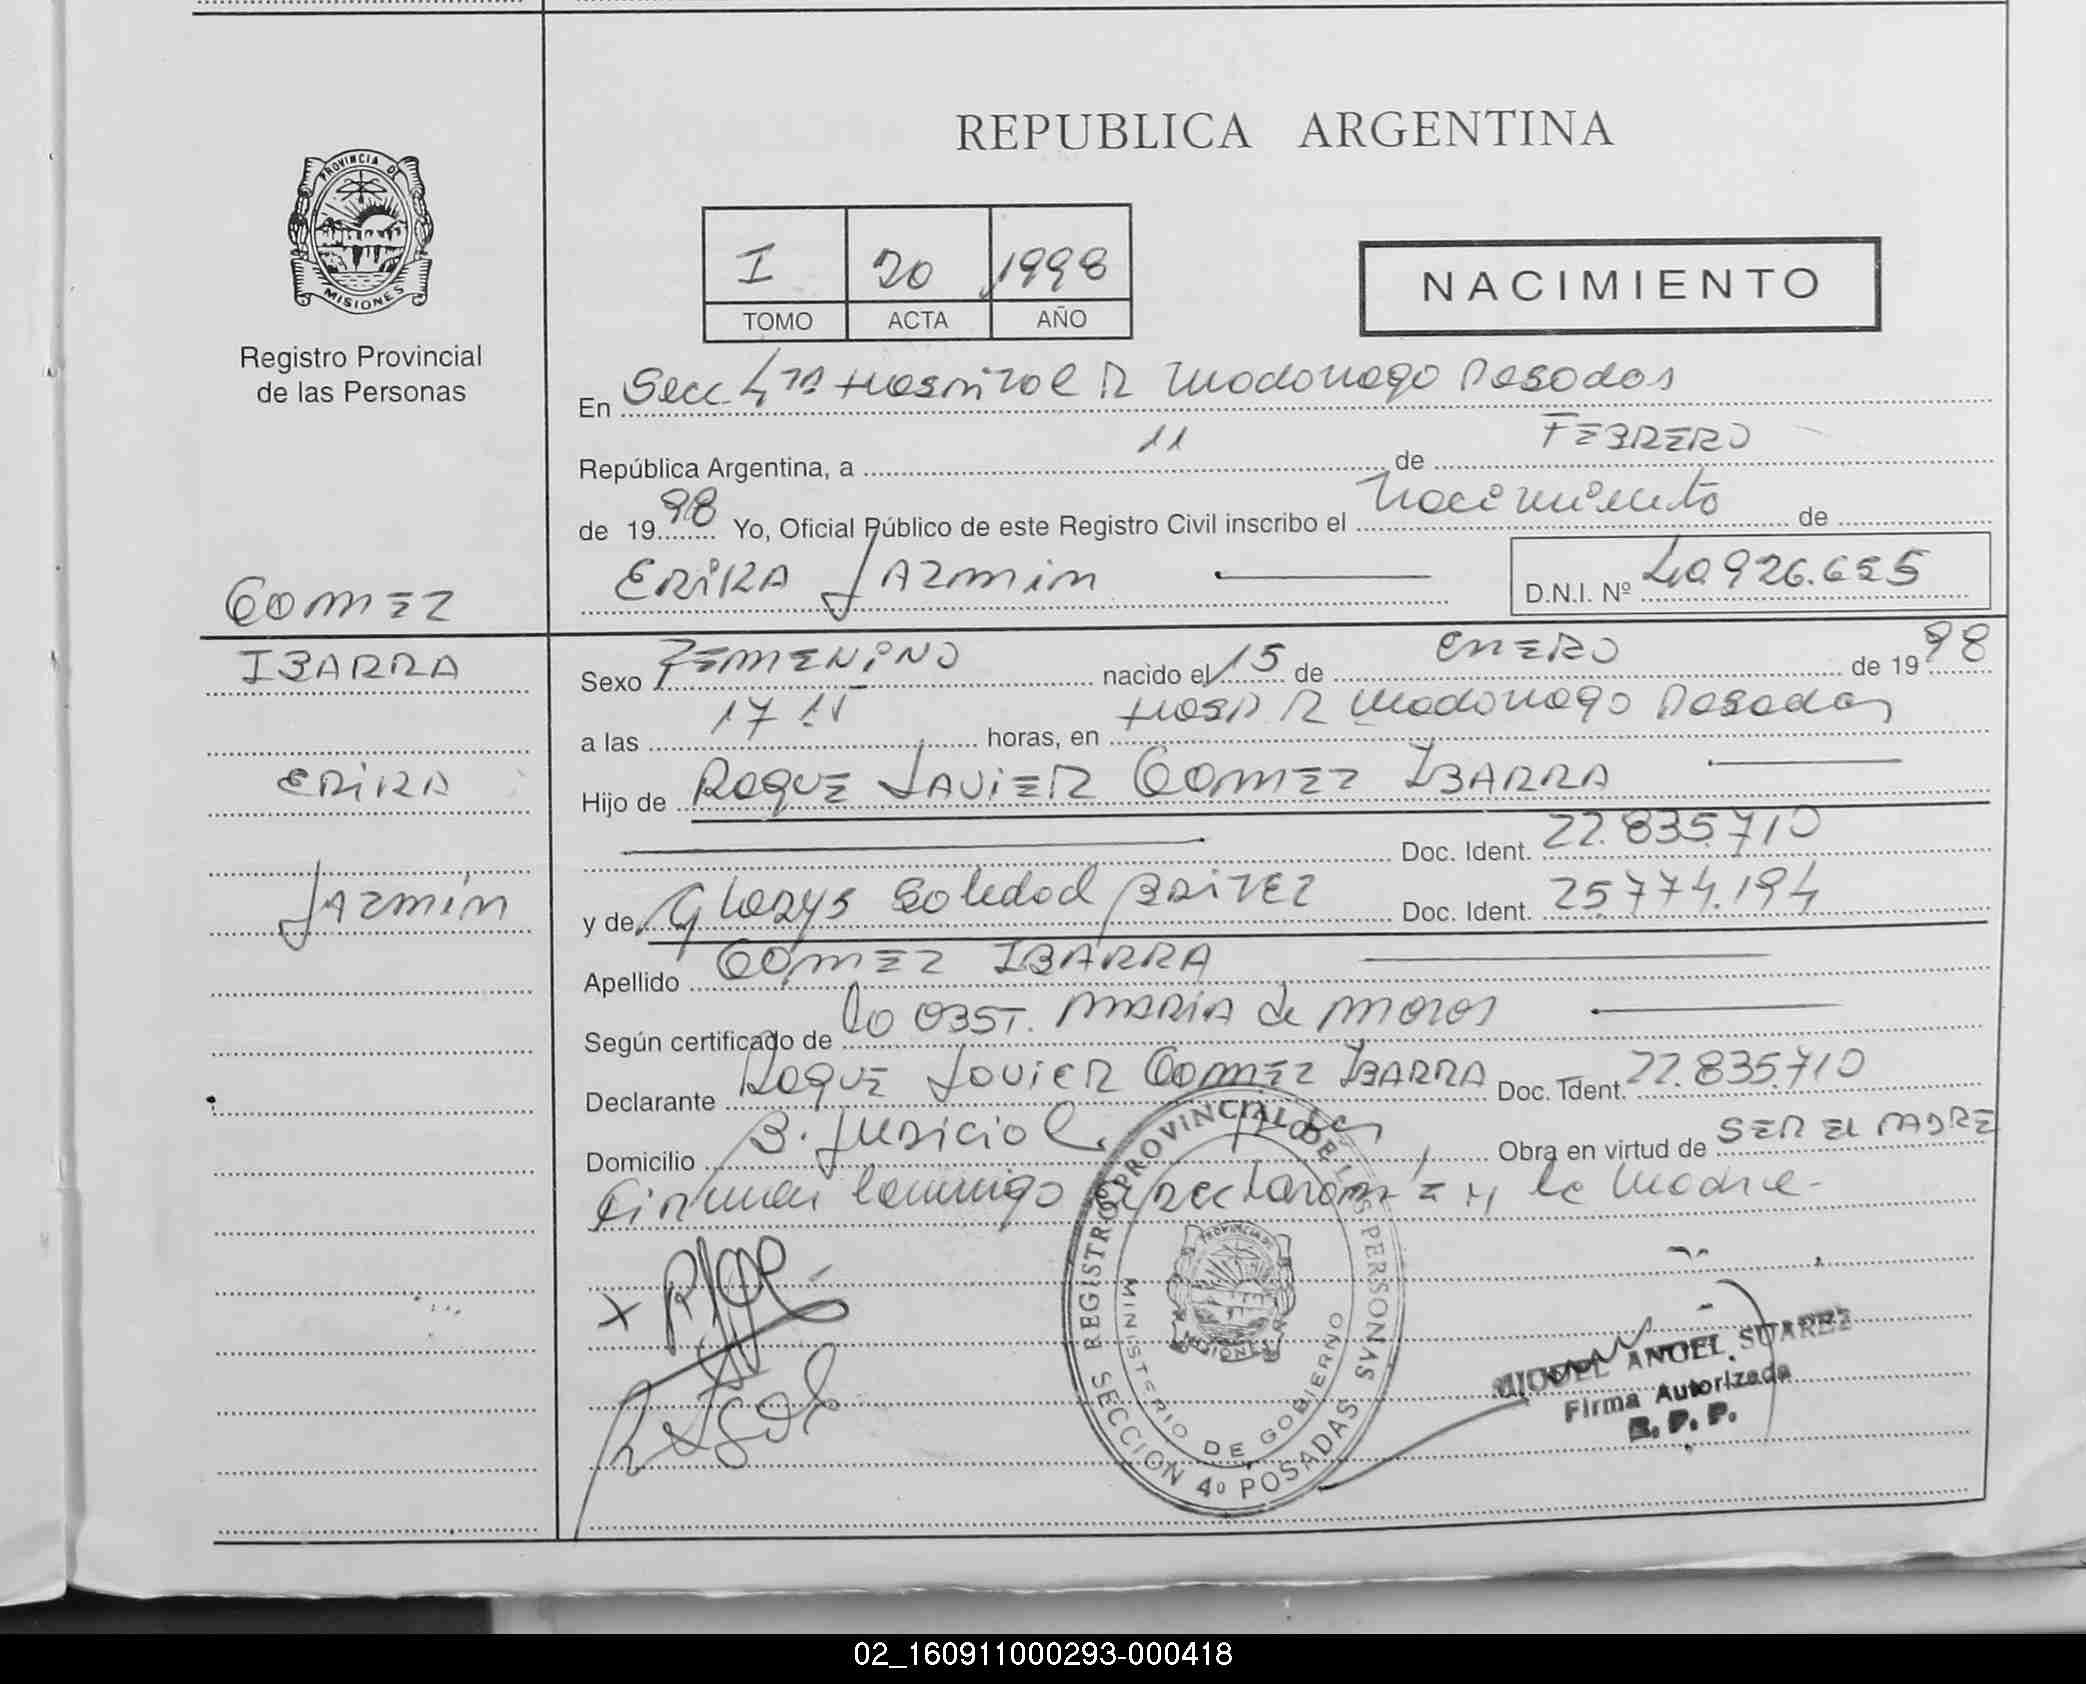 REPUBLICA ARGENTINA
PROVINCIA DE
MISIONES
Registro Provincial
de las Personas
I 20 1998
TOMO ACTA AÑO
NACIMIENTO
En Secc 4ta Hospital R Madariaga Posadas
República Argentina, a 11 de FEBRERO
de 1998 Yo, Oficial Público de este Registro Civil inscribo el Nacimiento de
ERIKA JAZMIN D.N.I. Nº 40.926.655
GOMEZ
IBARRA
ERIKA
JAZMIN
Sexo FEMENINO nacido el 15 de ENERO de 1998
a las 17 15 horas, en Hosp R Madariaga Posadas
Hijo de ROQUE JAVIER GOMEZ IBARRA
Doc. Ident. 22.835.710
y de Gladys Soledad BRITEZ Doc. Ident. 25.774.194
Apellido GOMEZ IBARRA
Según certificado de la OBST. MARIA de
Declarante ROQUE JAVIER GOMEZ IBARRA Doc. Ident. 22.835.710
Domicilio B. Judicial Obra en virtud de SER EL PADRE
Firman conmigo y la Madre-
REGISTRO PROVINCIAL DE LAS PERSONAS
MINISTERIO DE GOBIERNO
SECCION 4º POSADAS
PROVINCIA DE
MISIONES
MIGUEL ANGEL SUAREZ
Firma Autorizada
R. P. P.
02_160911000293-000418